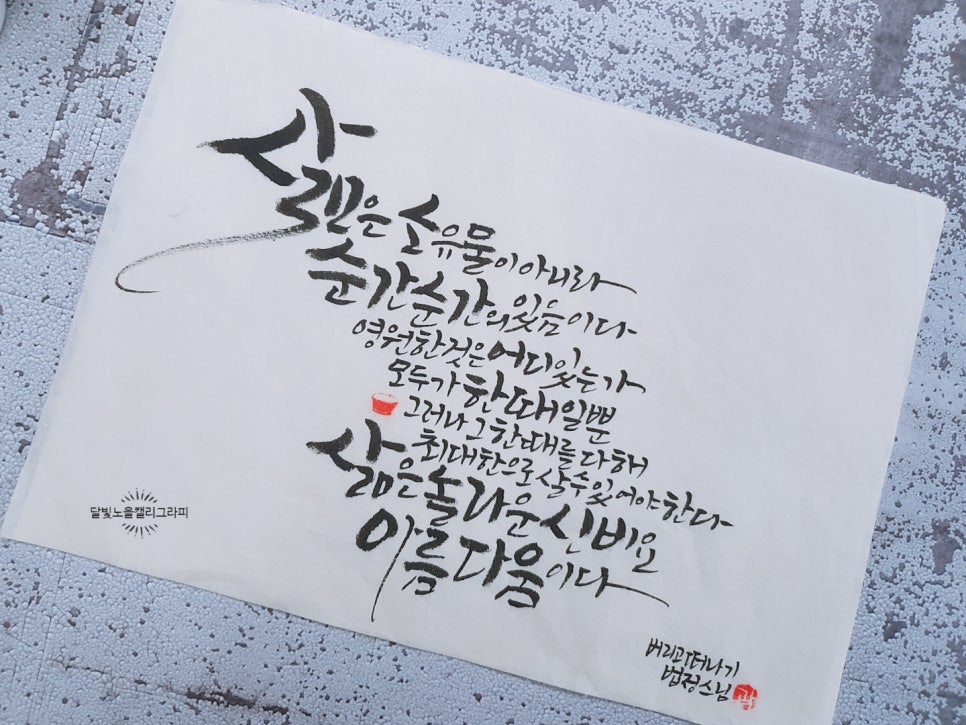 삶은 소유물이 아니라
순간순간의 있음이다
영원한 것은 어디 있는가
모두가 한때일 뿐
그러나 그 한때를 다해
최대한으로 살 수 있어야 한다
삶은 놀라운 신비요
아름다움이다
버리고 떠나기
법정스님
달빛노을캘리그라피